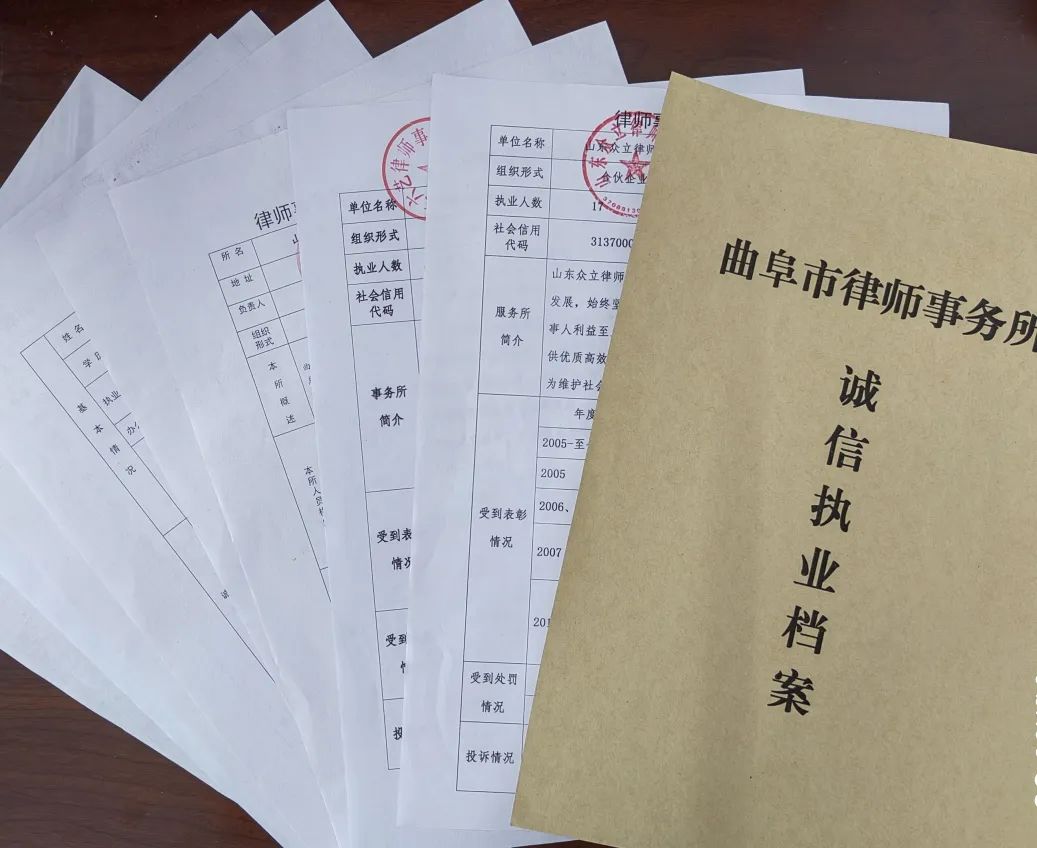 曲阜市律师事务所
诚信执业档案
律师事
单位名称
山东众立律师
组织形式
合伙企业
执业人数
17
社会信用
代码
3137000
服务所
简介
山东众立律师
发展,始终坚
事人利益至
供优质高效
为维护社会
受到表彰
情况
年度
2005-至
2005
2006、
2007
201
受到处罚
情况
投诉情况
律师事
单位名称
组织形式
执业人数
社会信用
代码
事务所
简介
受到表
情况
受到
情
投
律师
所名
地址
负责人
组织
形式
本所概述
本所人员
姓名
学
执业
办公
基本情况